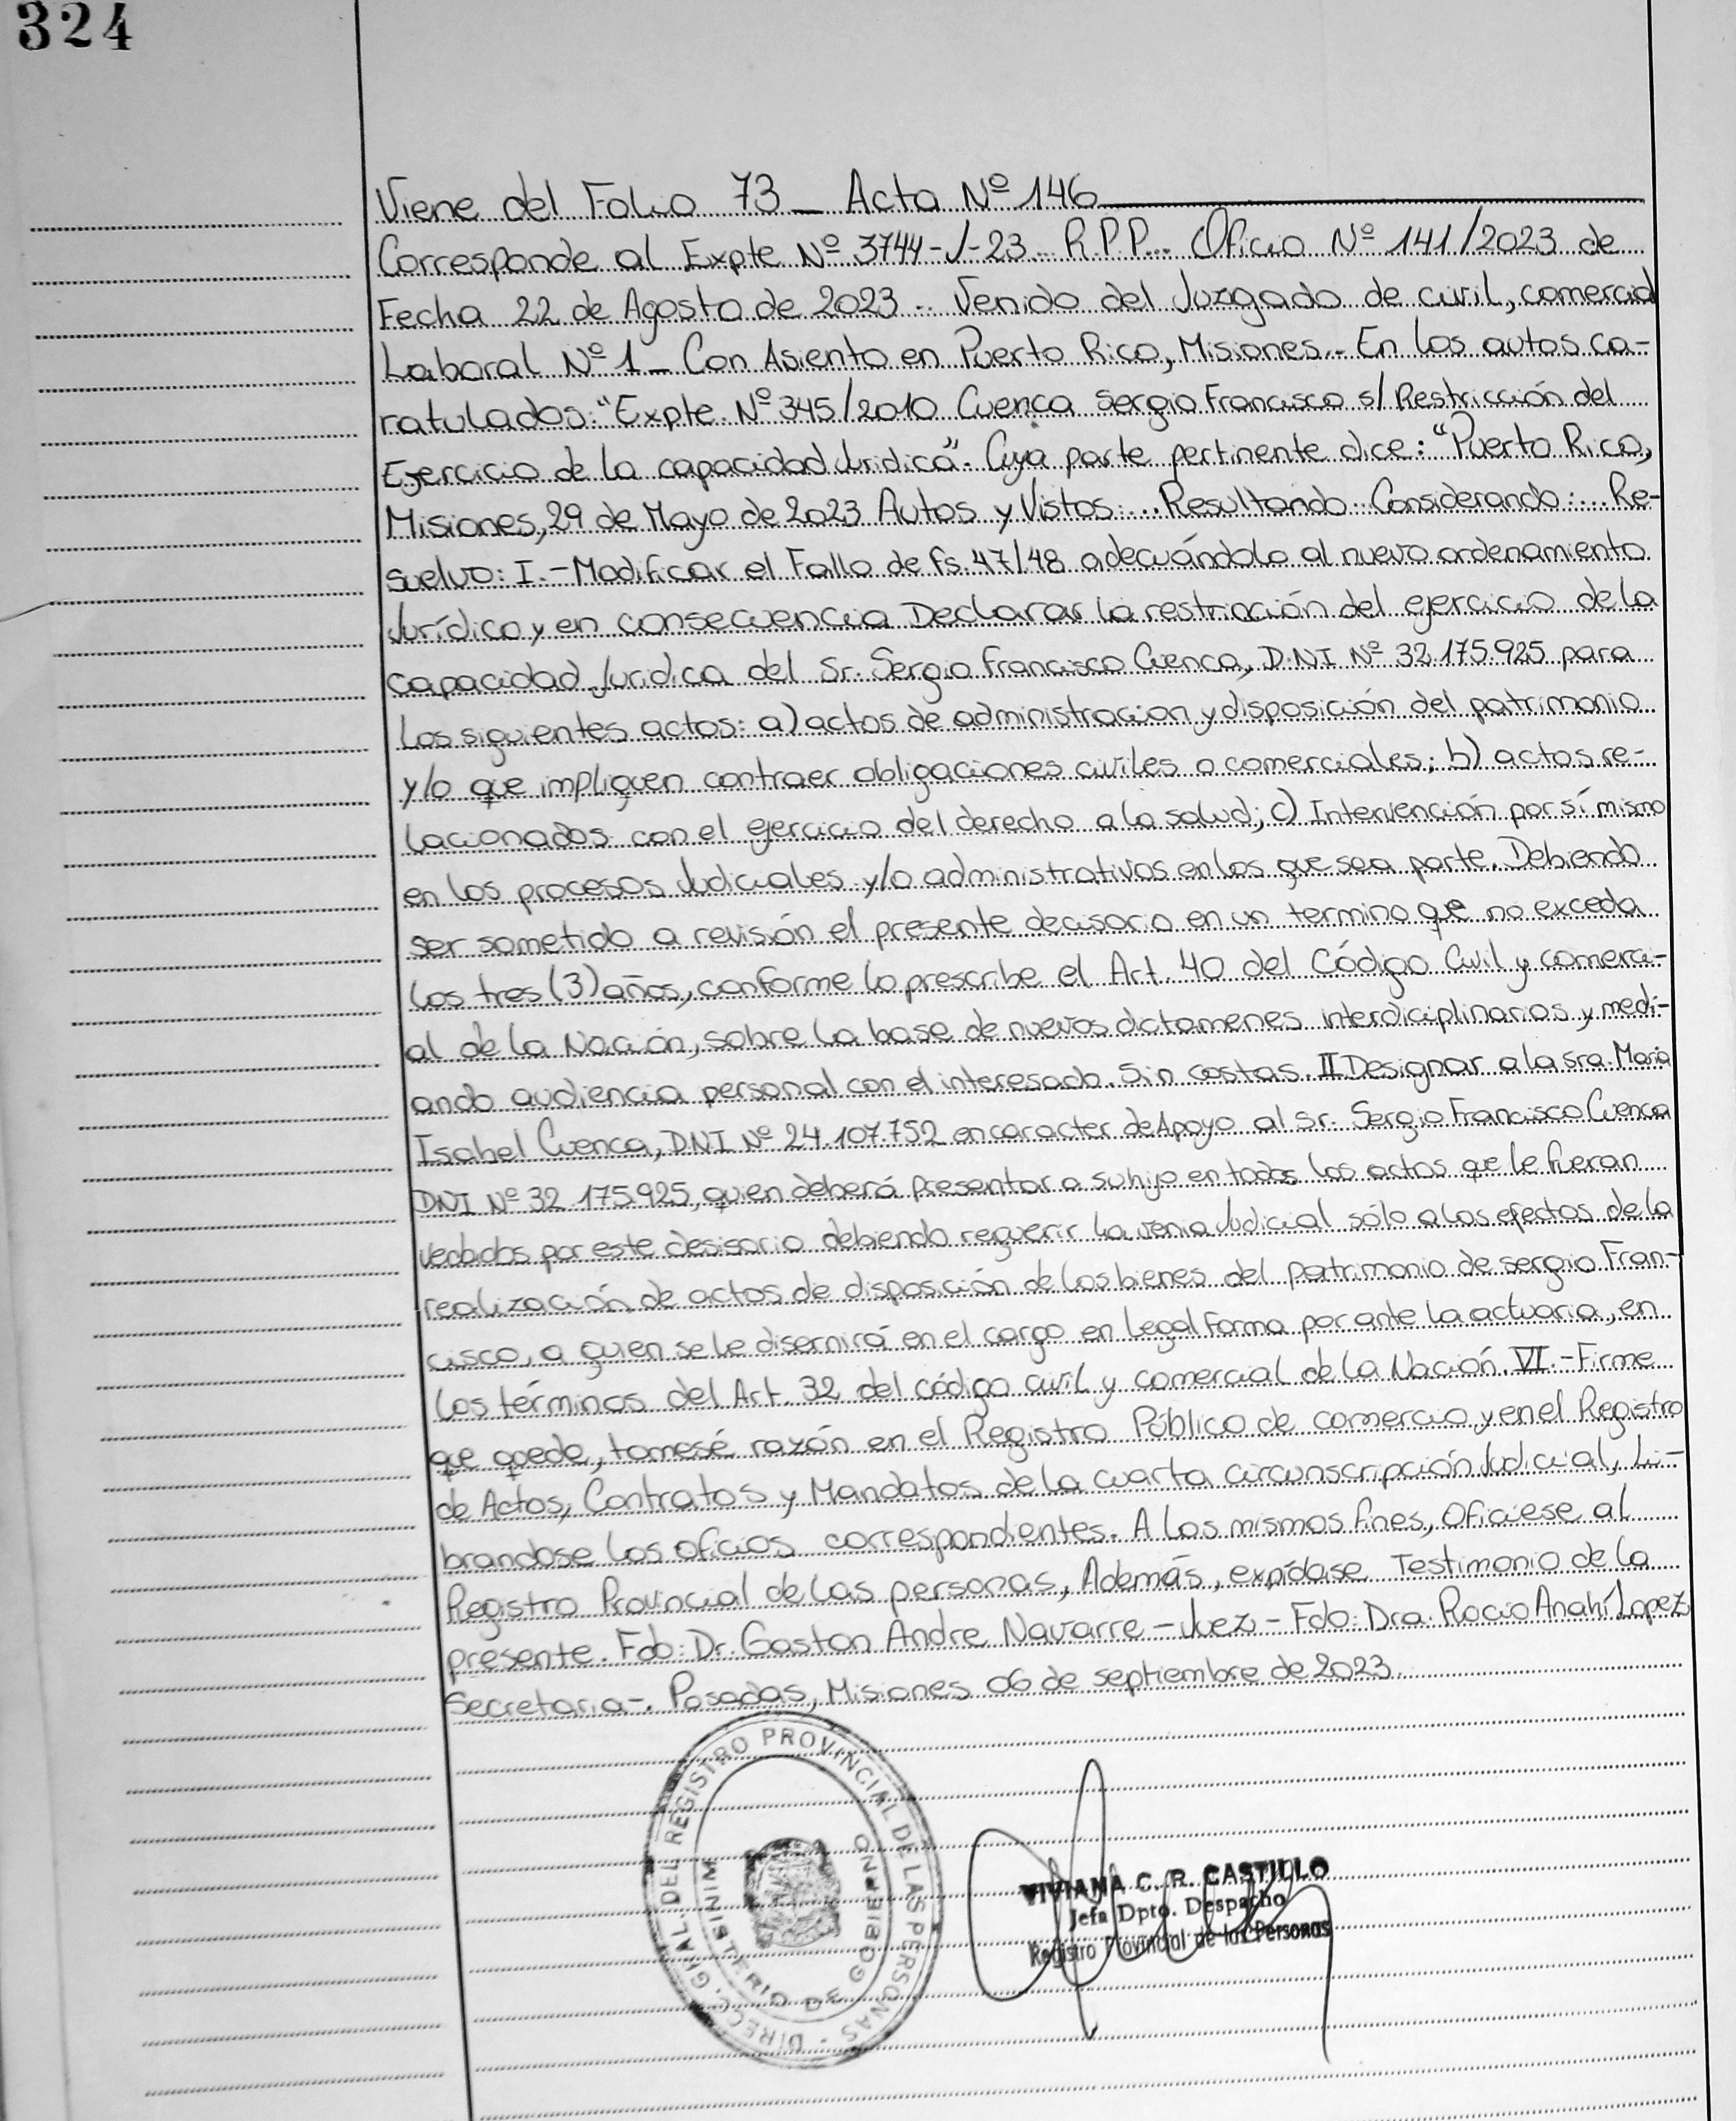 324
Viene del Folio 73 _ Acta Nº 146
Corresponde al Expte Nº 3744-J-23.. R.P.P... Oficio Nº 141/2023 de
Fecha 22 de Agosto de 2023.. Venido del Juzgado de civil, comercial
Laboral Nº 1 _ Con Asiento en Puerto Rico, Misiones.- En los autos ca-
ratulados: "Expte. Nº 345/2010 Cuenca Sergio Francisco s/ Restricción del
Ejercicio de la capacidad Juridica". Cuya parte pertinente dice: "Puerto Rico,
Misiones, 29 de Mayo de 2023 Autos y Vistos:... Resultando.. Considerando:... Re-
suelvo: I.- Modificar el Fallo de fs. 47/48 adecuándolo al nuevo ordenamiento
Jurídico y en consecuencia Declarar la restricción del ejercicio de la
capacidad Juridica del Sr. Sergio Francisco Cuenca, D.N.I Nº 32.175.925 para
los siguientes actos: a) actos de administracion y disposición del patrimonio
y/o que impliquen contraer obligaciones civiles o comerciales; b) actos re-
lacionados con el ejercicio del derecho a la salud; c) Intervención por sí mismo
en los procesos Judiciales y/o administrativos en los que sea parte. Debiendo
ser sometido a revisión el presente decisorio en un termino que no exceda
los tres (3) años, conforme lo prescribe el Art. 40 del Código Civil y comerci-
al de la Nación, sobre la base de nuevos dictamenes interdiciplinarios y medi-
ando audiencia personal con el interesado. Sin costas. II Designar a la Sra. Maria
Isabel Cuenca, DNI Nº 24.107.752 en caracter de Apoyo al Sr. Sergio Francisco Cuenca
DNI Nº 32.175.925, quien deberá presentar a su hijo en todos los actos que le fueran
vedados por este desisorio debiendo requerir la venia Judicial sólo a los efectos de la
realización de actos de disposición de los bienes del patrimonio de sergio Fran-
cisco, a quien se le disernirá en el cargo en legal Forma por ante la actuaria, en
los términos del Art. 32 del código civil y comercial de la Nación. VI.- Firme
que quede, tomesé razón en el Registro Público de comercio y en el Registro
de Actos, Contratos y Mandatos de la cuarta circunscripción Judicial, Li-
brandose los oficios correspondientes. A los mismos fines, Ofíciese al
Registro Provincial de las personas, Además, expídase Testimonio de la
presente. Fdo: Dr. Gaston Andre Navarre - Juez - Fdo: Dra. Rocio Anahí Lopez
Secretaria-. Posadas, Misiones 06 de septiembre de 2023
DIREC. GRAL. DEL REGISTRO PROVINCIAL DE LAS PERSONAS -
MINISTERIO DE GOBIERNO
VIVIANA C. R. CASTILLO
Jefa Dpto. Despacho
Registro Provincial de las Personas